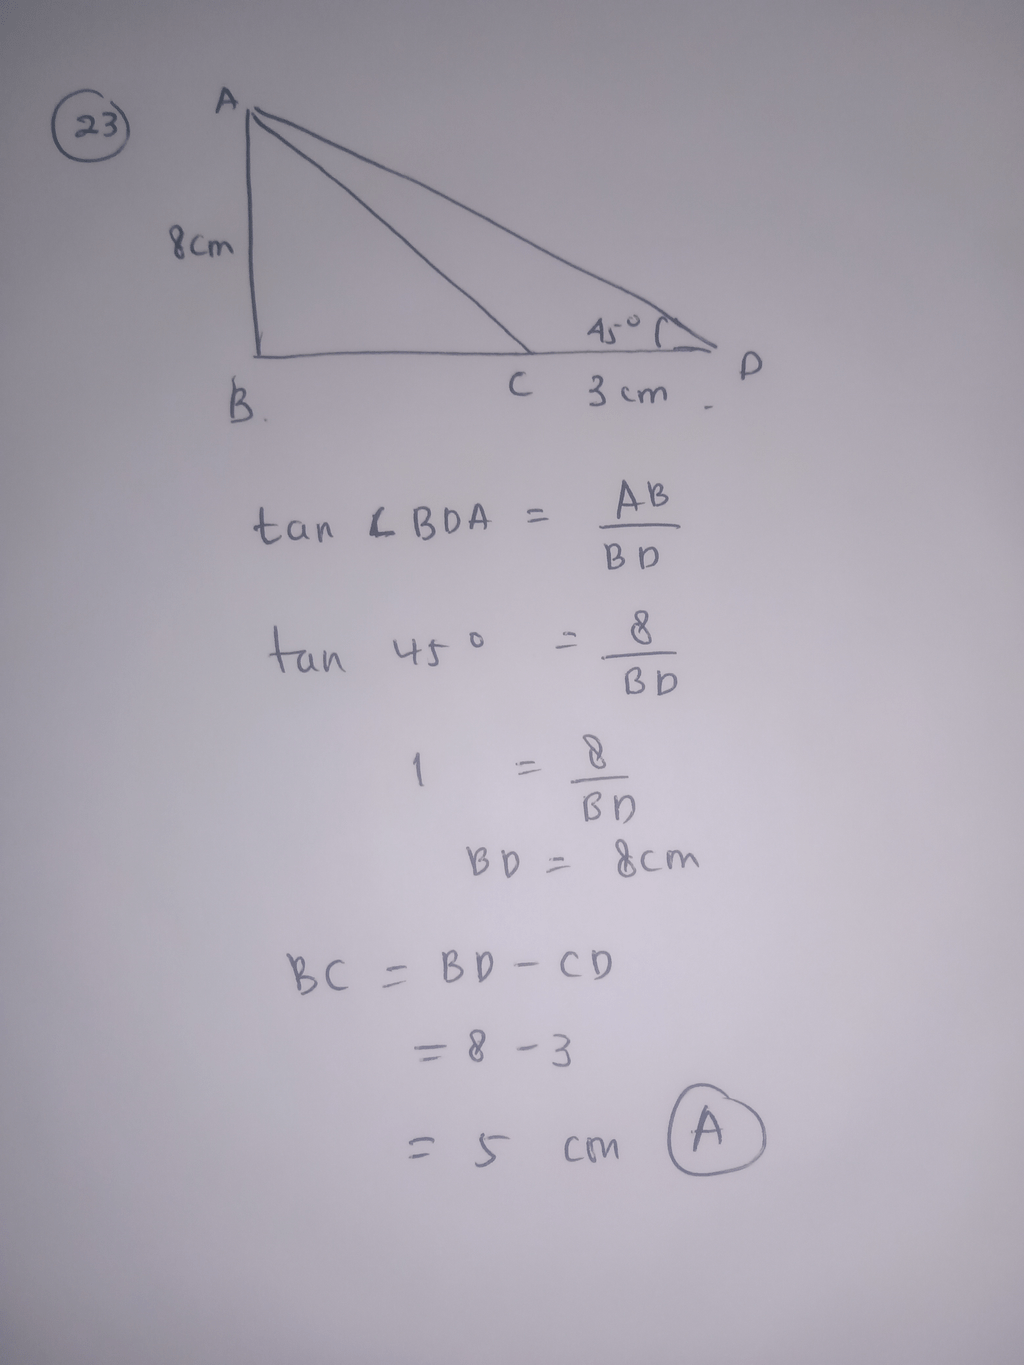 23
A
8cm
45°
B.
C
3 cm
D
tan ∠BDA = AB/BD
tan 45° = 8/BD
1 = 8/BD
BD = 8cm
BC = BD - CD
= 8 - 3
= 5 cm A